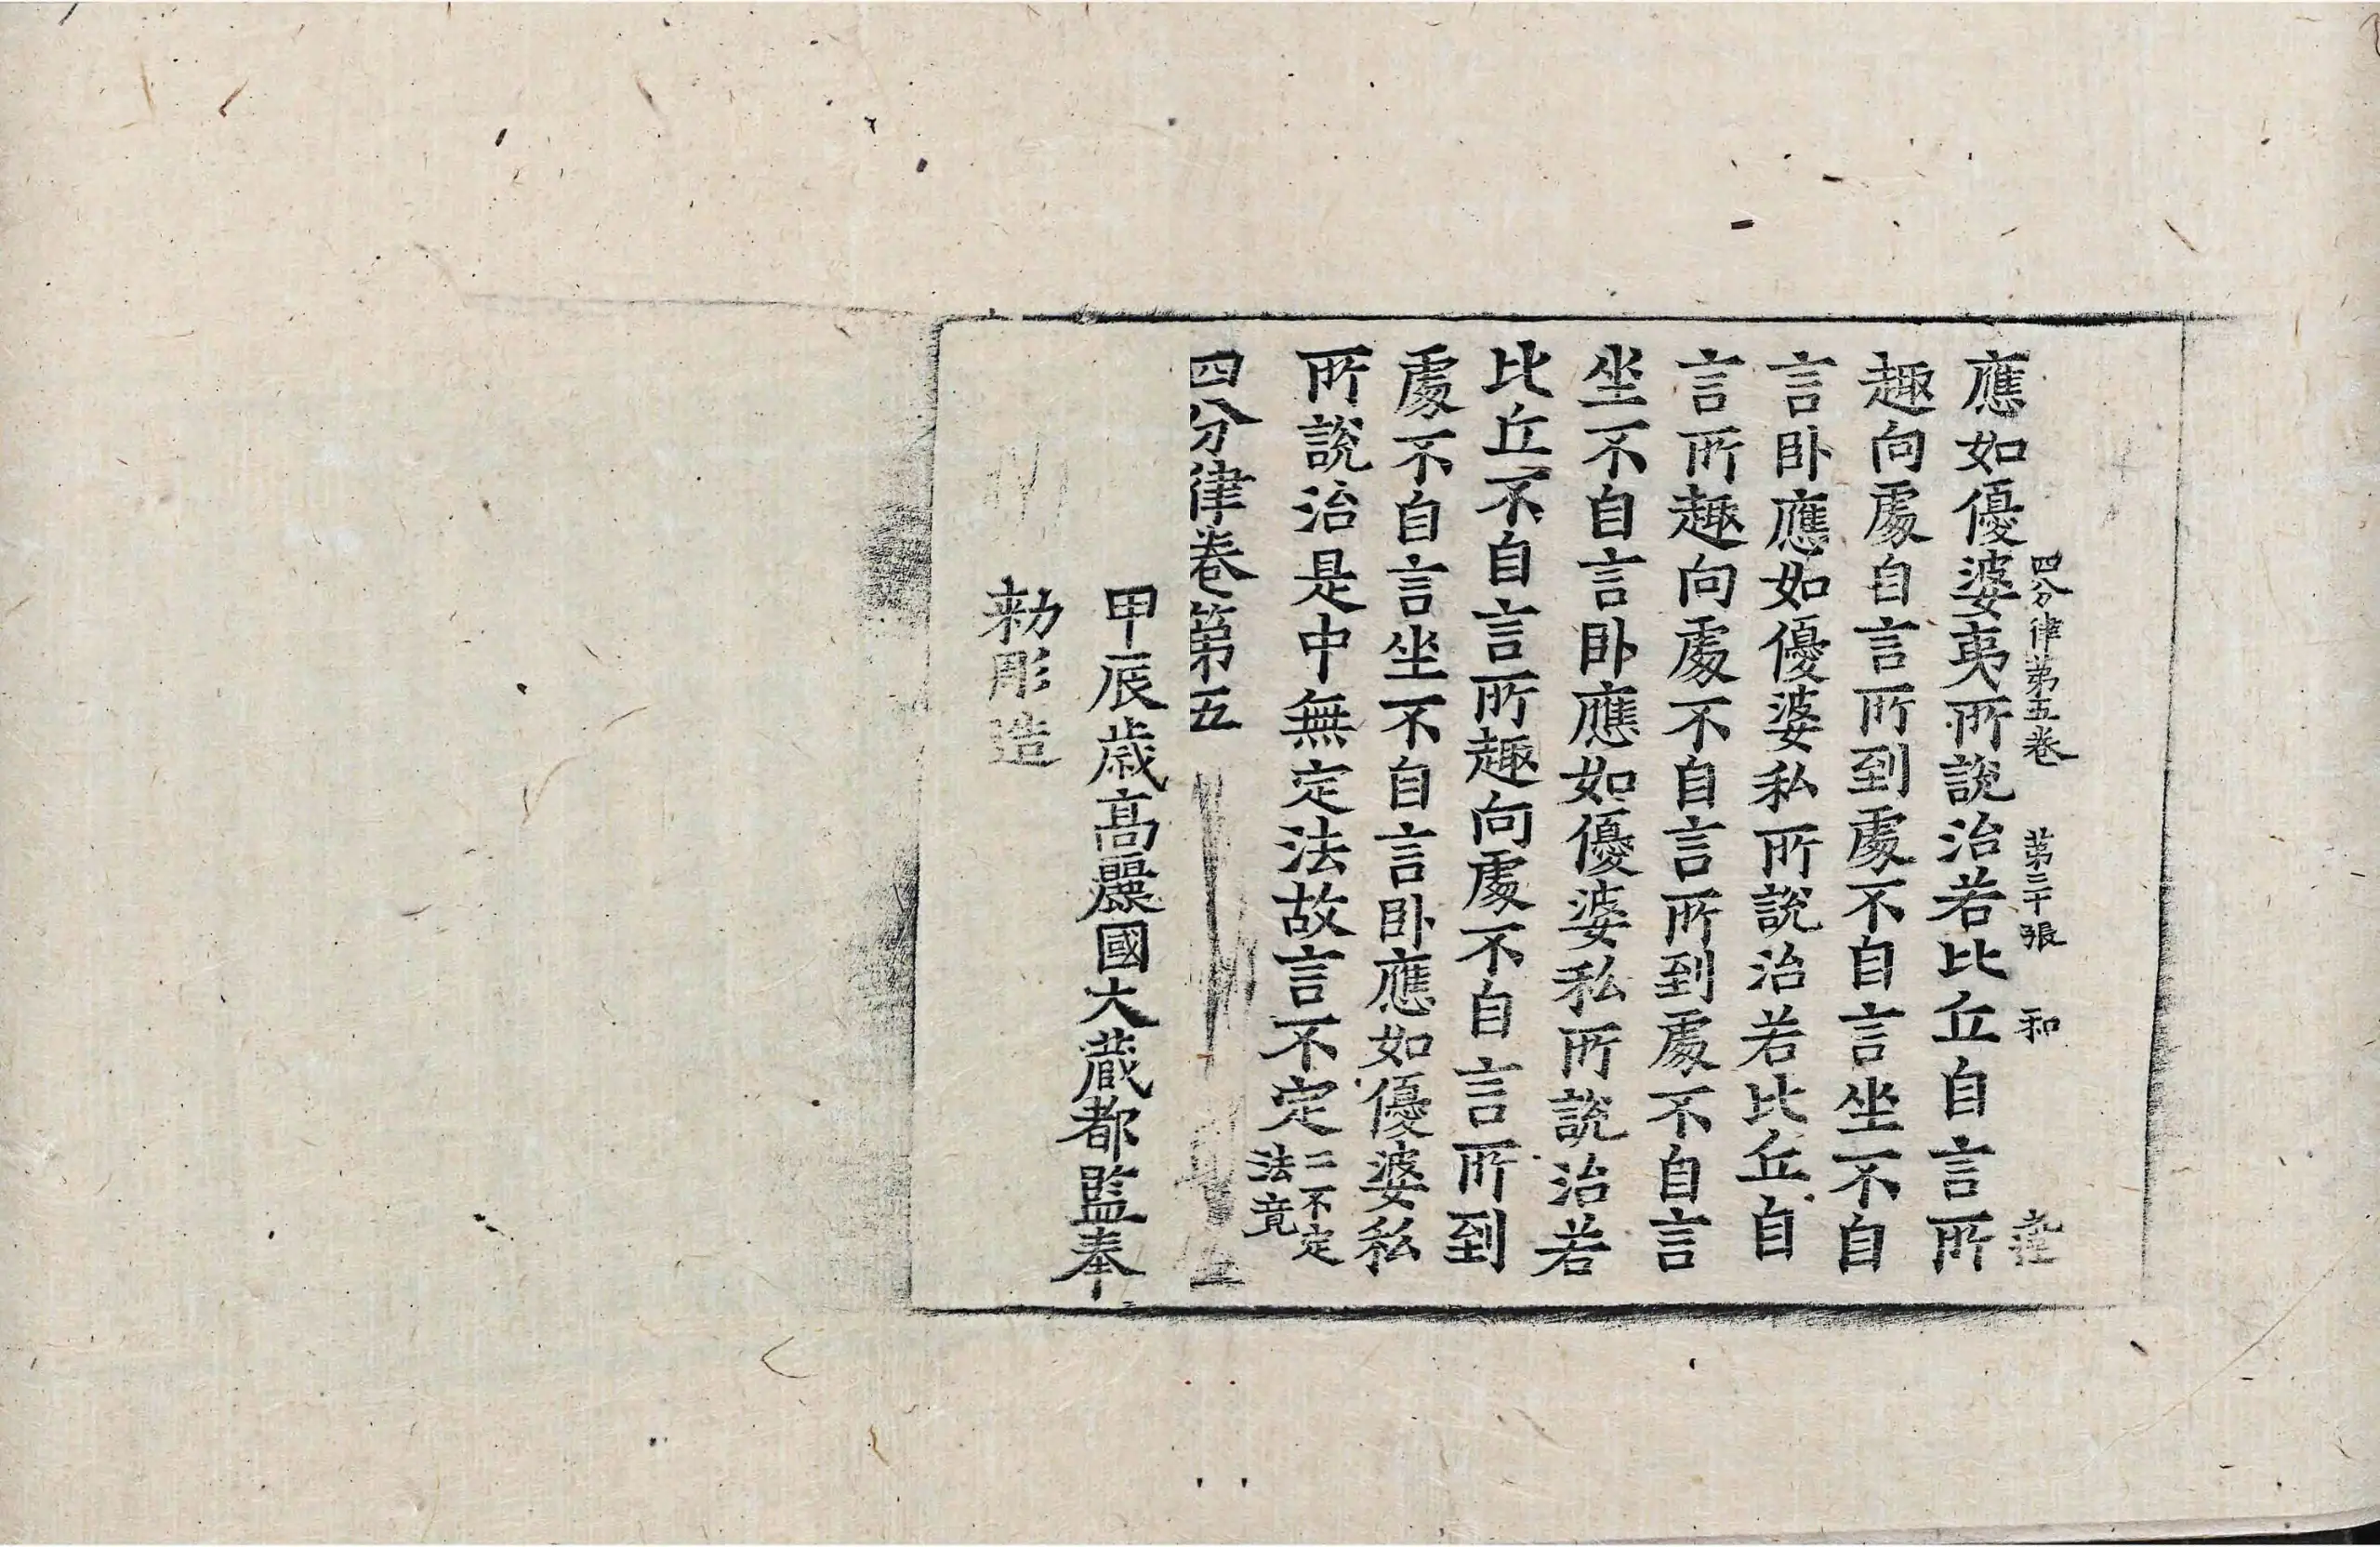 四分律第五卷 第三十張 和
應如優婆夷所說治若比丘自言所
趣向處自言所到處不自言坐不自
言卧應如優婆私所說治若比丘自
言所趣向處不自言所到處不自言
坐不自言卧應如優婆私所說治若
比丘不自言所趣向處不自言所到
處不自言坐不自言卧應如優婆私
所說治是中無定法故言不定二不定
法竟
四分律卷第五
甲辰歲高麗國大藏都監奉
勑彫造